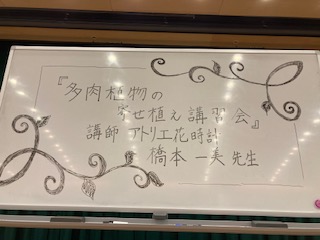 『多肉植物の
寄せ植え講習会』
講師 アトリエ花時計
橋本 一美 先生